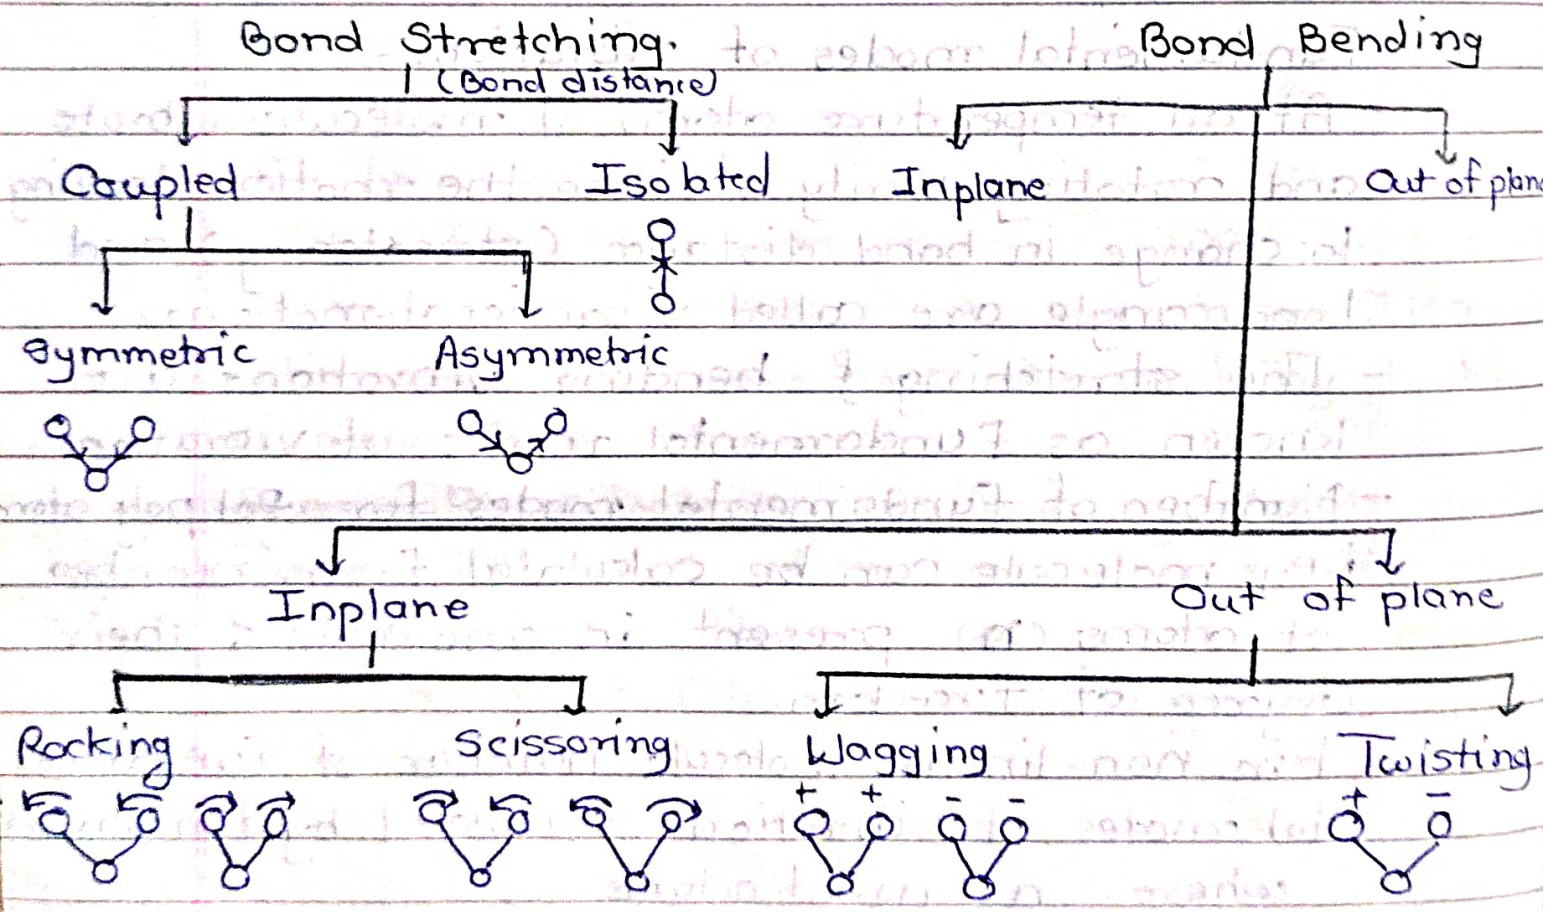 Bond Stretching. Bond Bending
(Bond distance)
Coupled Isolated Inplane Out of plane
Symmetric Asymmetric
Inplane Out of plane
Rocking Scissoring Wagging Twisting
+ + - - + -